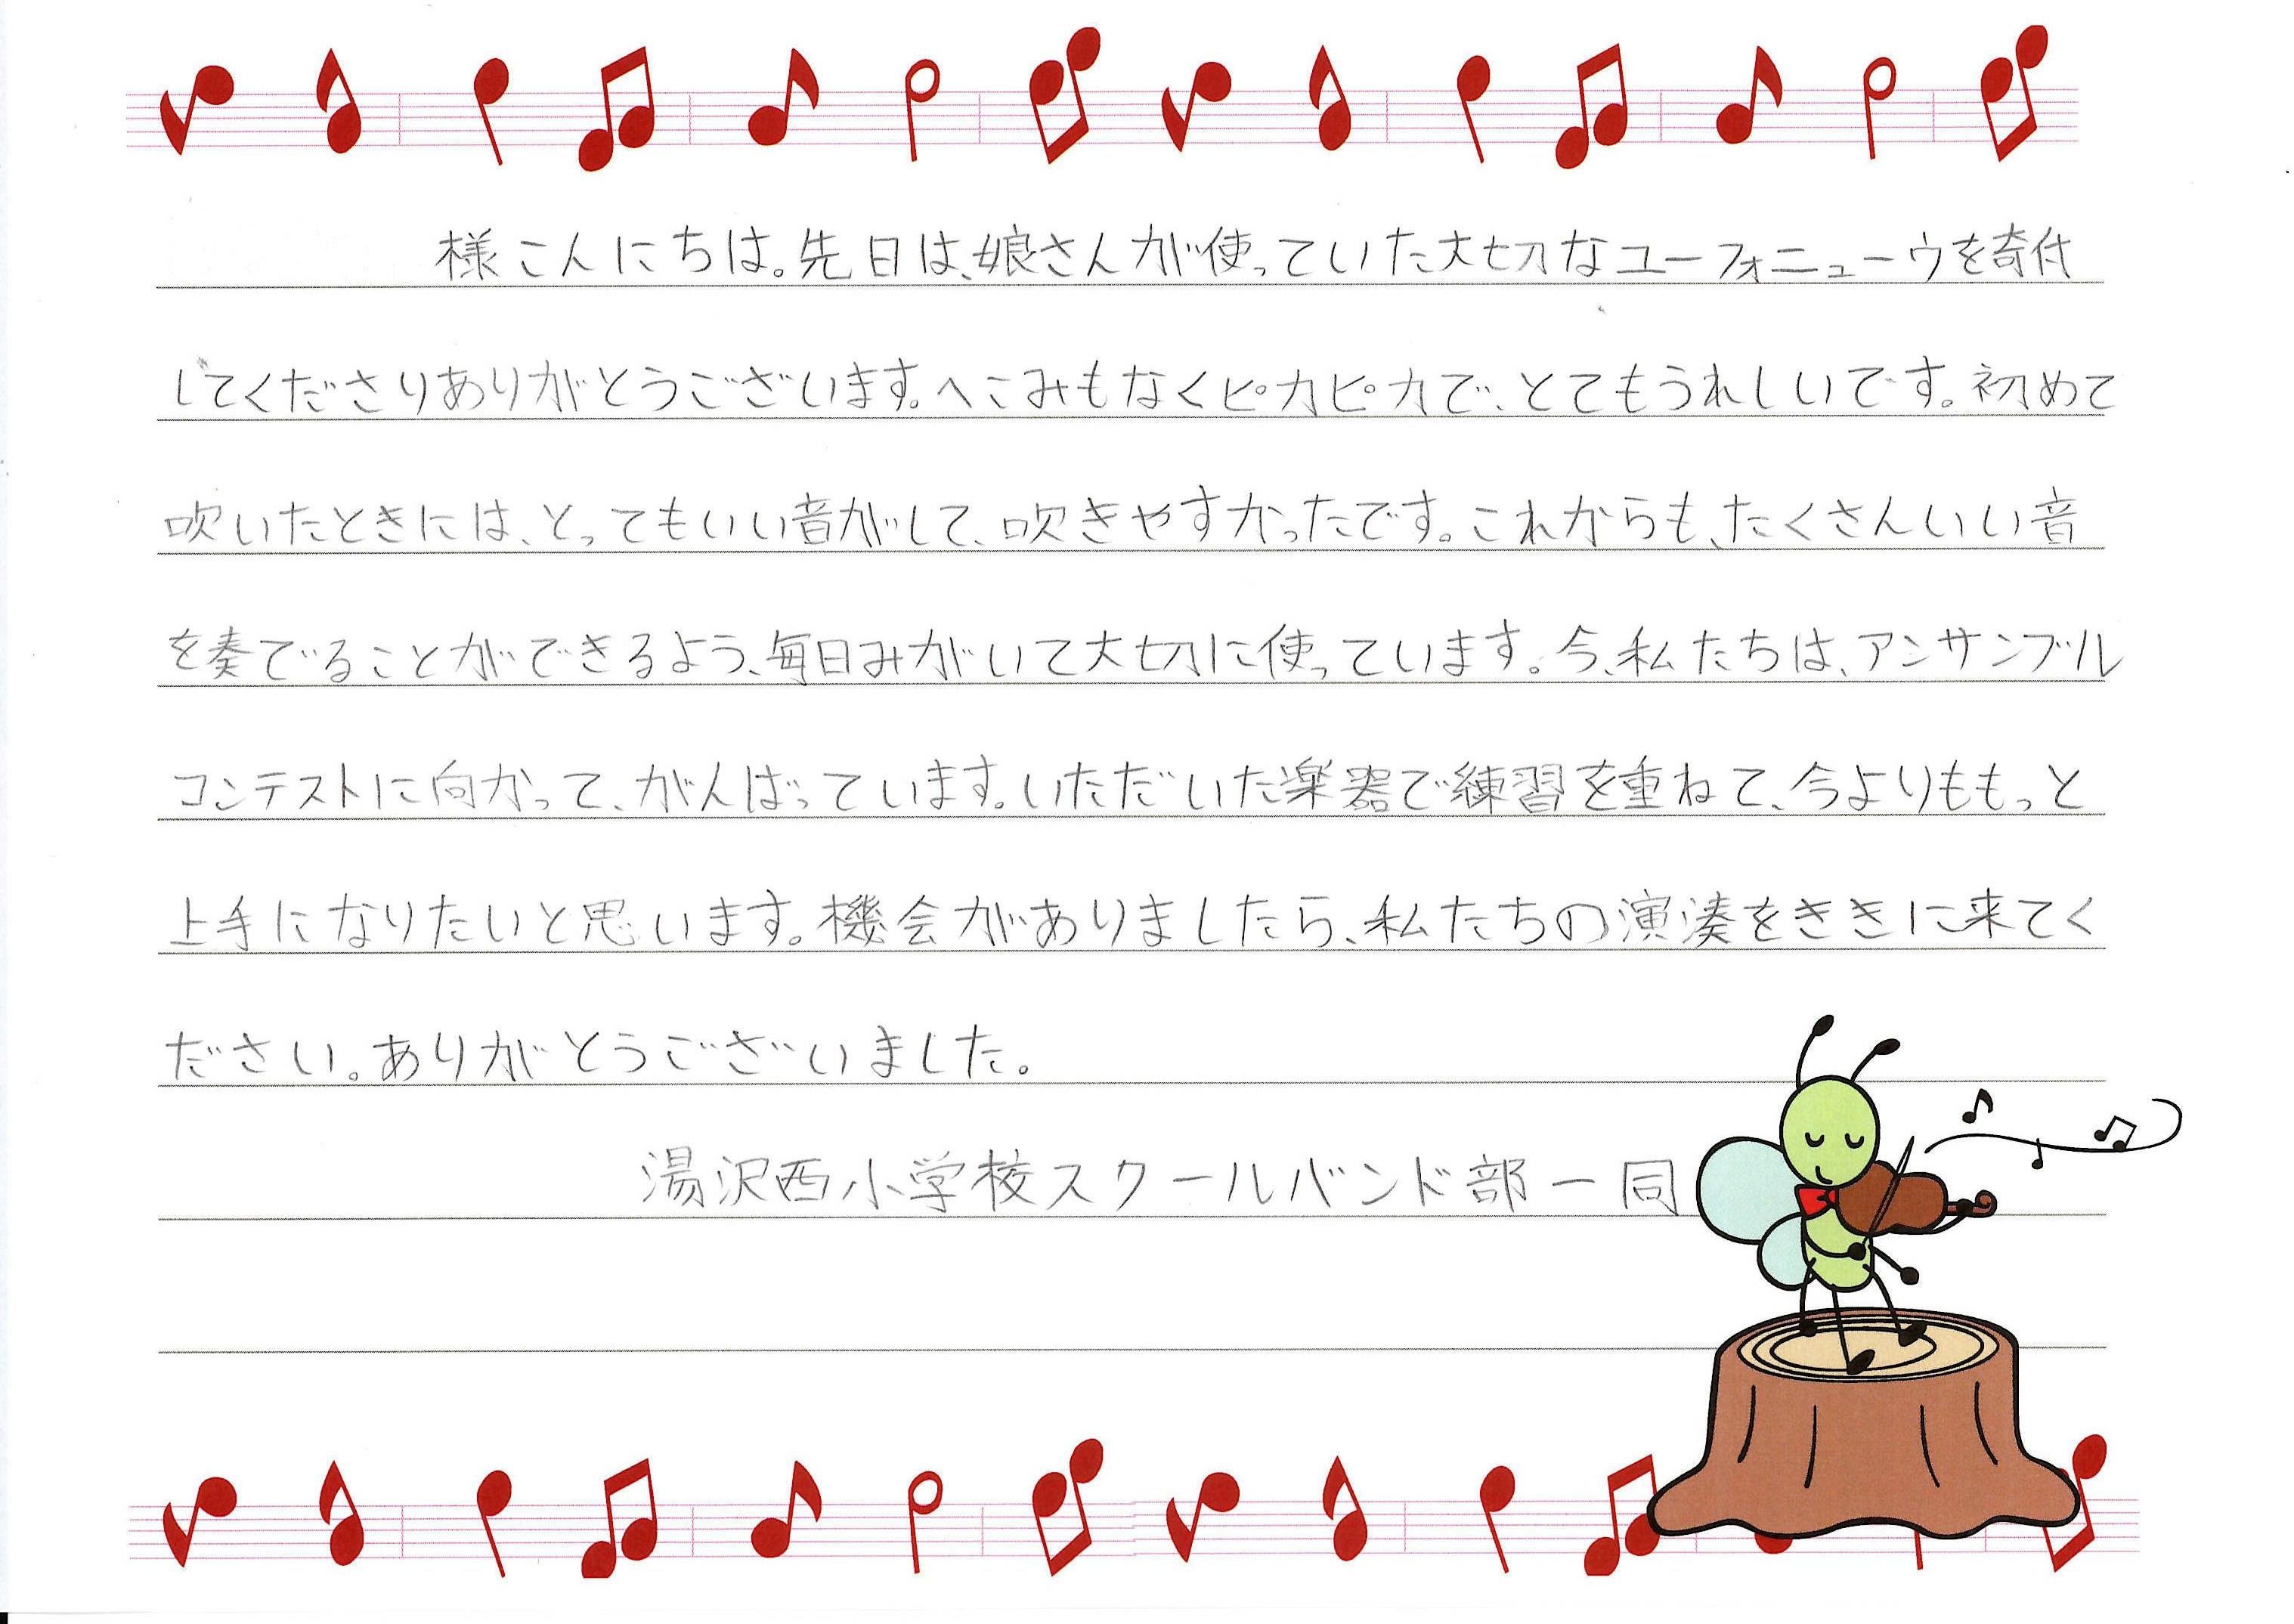 様こんにちは。先日は、娘さんが使っていた大切なユーフォニューウを寄付
してくださりありがとうございます。へこみもなくピカピカで、とてもうれしいです。初めて
吹いたときには、とってもいい音がして、吹きやすかったです。これからも、たくさんいい音
を奏でることができるよう、毎日みがいて大切に使っています。今、私たちは、アンサンブル
コンテストに向かって、がんばっています。いただいた楽器で練習を重ねて、今よりももっと
上手になりたいと思います。機会がありましたら、私たちの演湊をききに来てく
ださい。ありがとうございました。
湯沢西小学校スクールバンド部一同